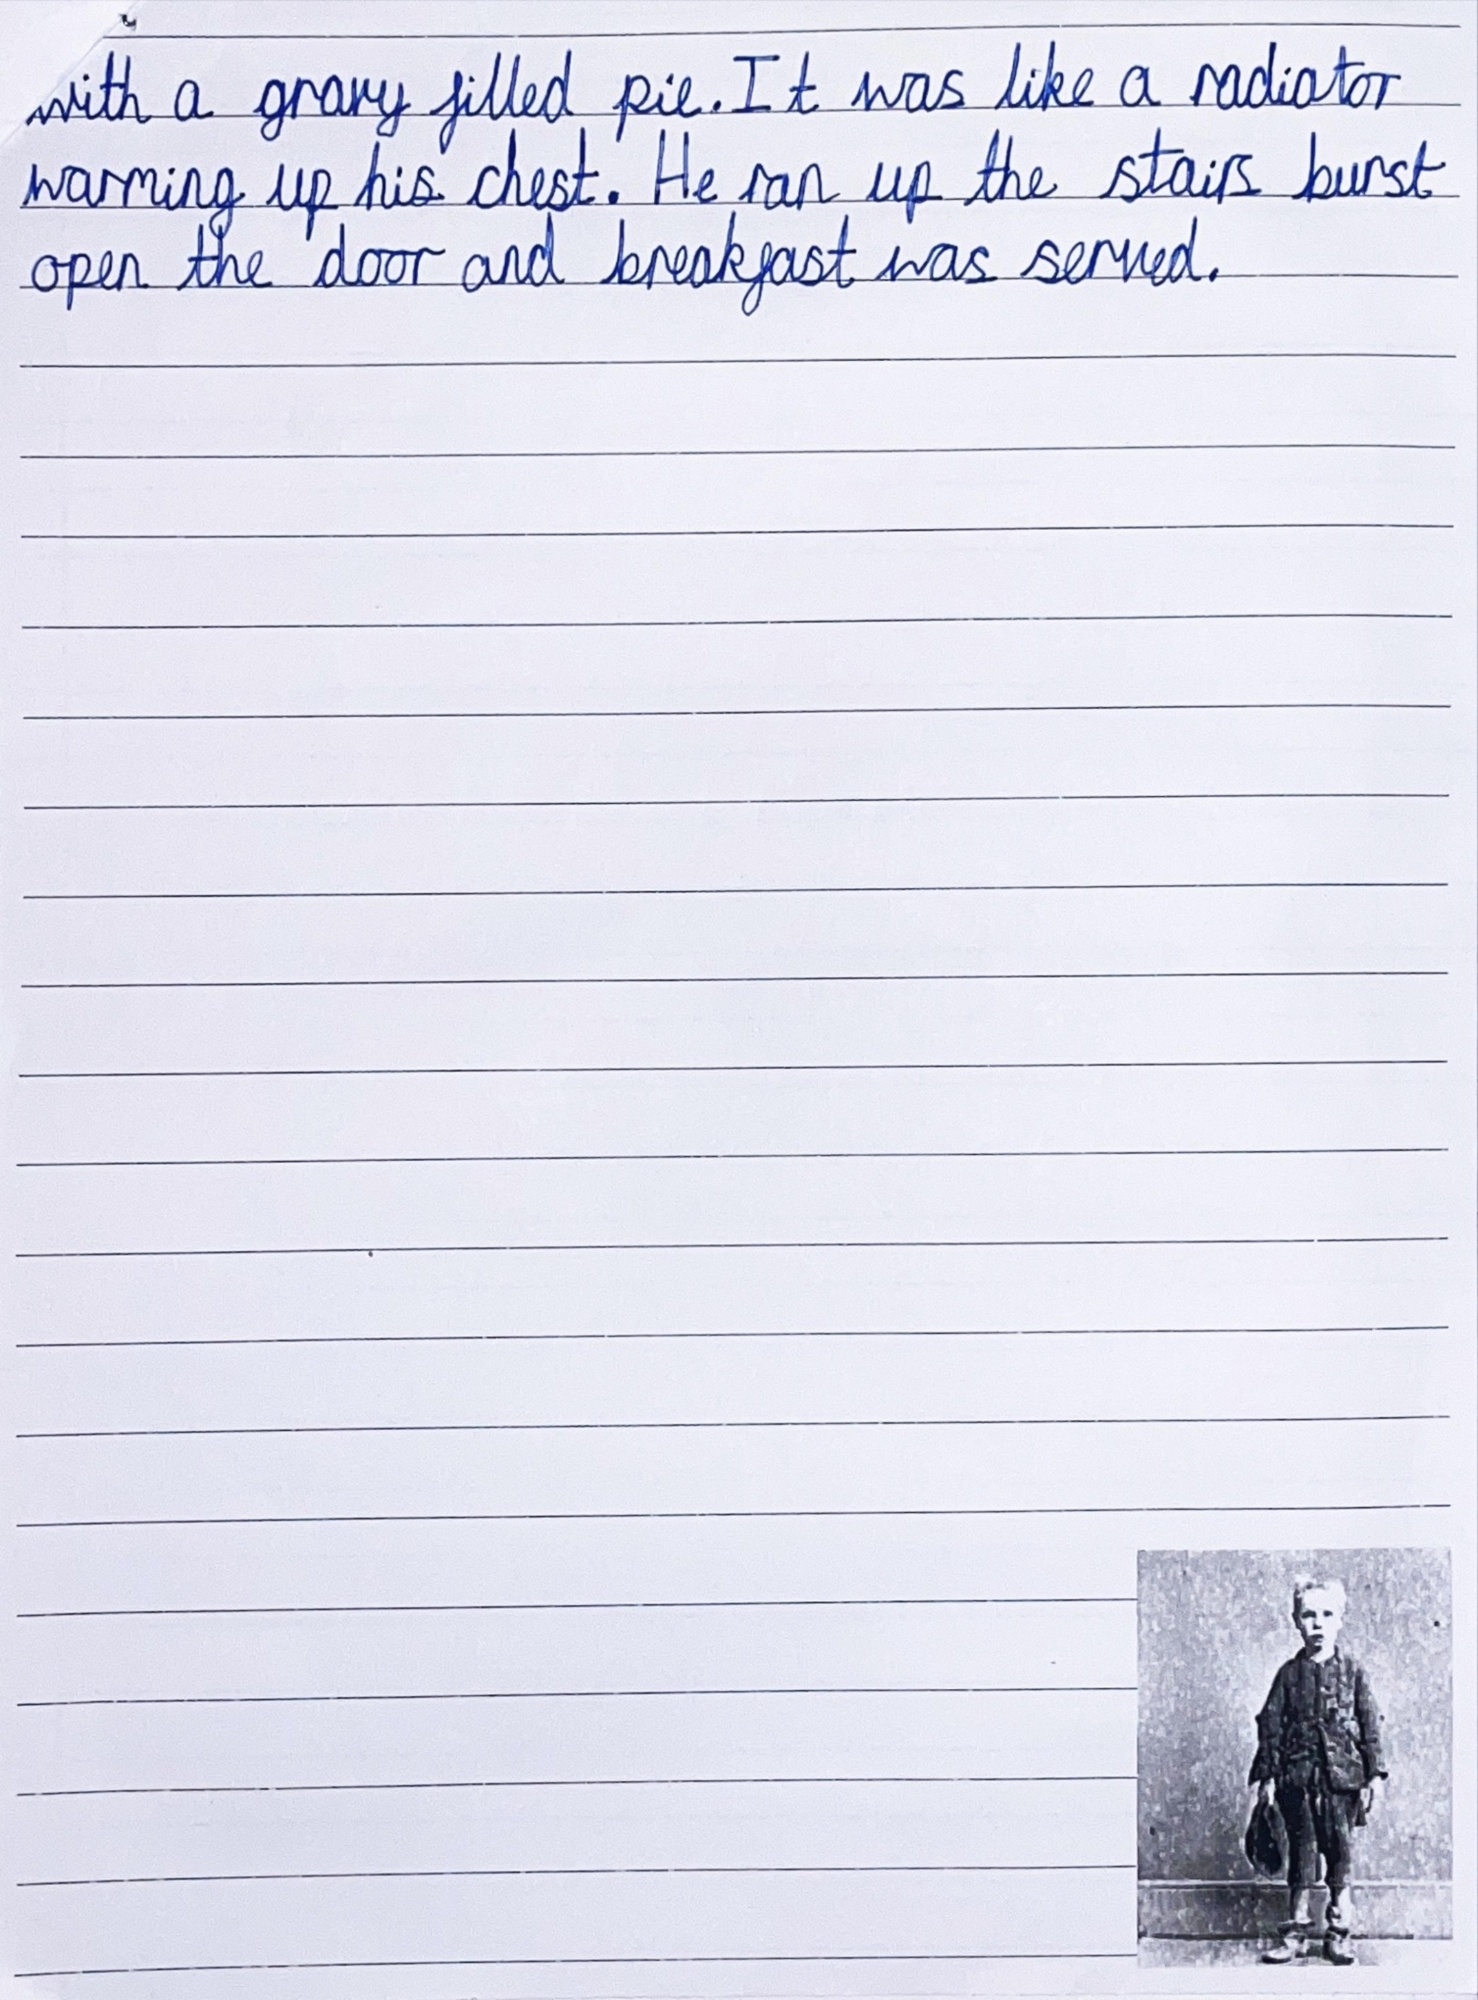 with a gravy filled pie. It was like a radiator
warming up his chest. He ran up the stairs burst
open the door and breakfast was served.